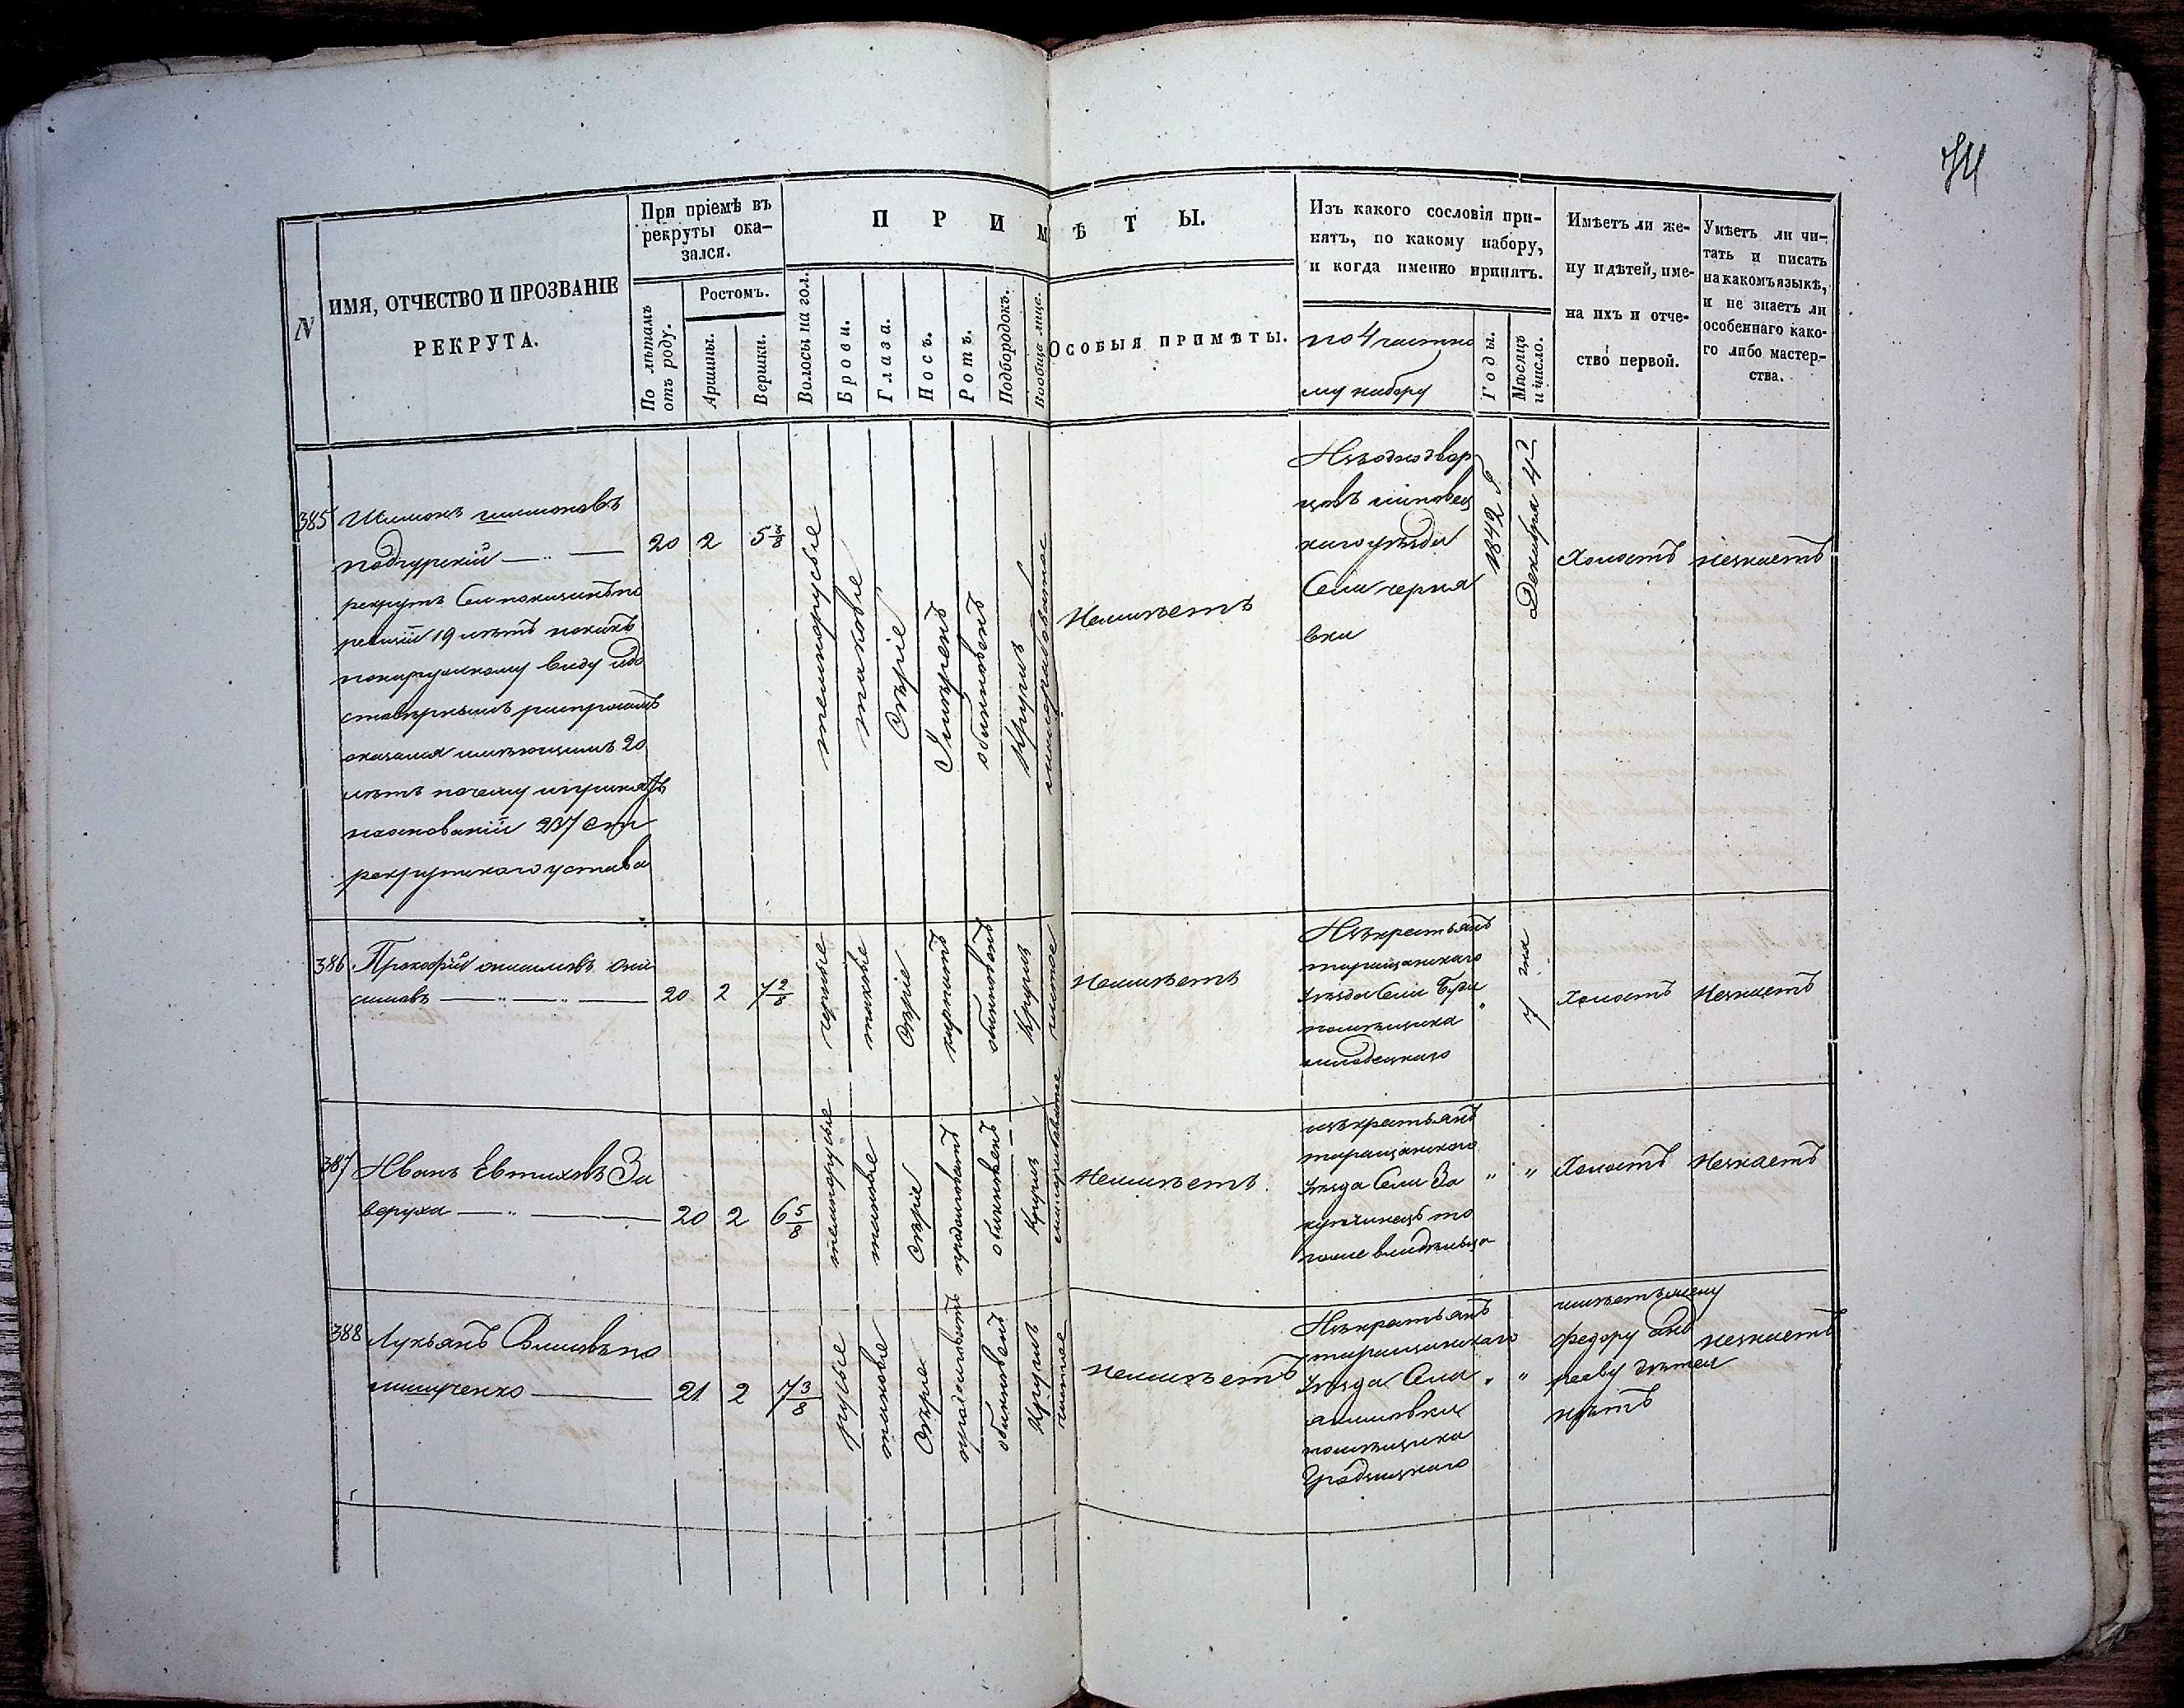 При пріемѣ въ
рекруты ока-
зался.
N
ИМЯ, ОТЧЕСТВО И ПРОЗВАНІЕ
РЕКРУТА.
По лѣтамъ
отъ роду.
Ростомъ.
Аршины.
Вершки.
ПРИМѢТЫ.
Волосы на гол.
Брови.
Глаза.
Носъ.
Ротъ.
Подбородокъ.
Вообще лице.
ОСОБЫЯ ПРИМѢТЫ.
Изъ какого сословія при-
нятъ, по какому набору,
и когда именно принятъ.
по 4 частно
му набору
Годы.
Мѣсяцъ
и число.
Имѣетъ ли же-
ну и дѣтей, име-
на ихъ и отче-
ство первой.
Умѣетъ ли чи-
тать и писать
на какомъ языкѣ,
и не знаетъ ли
особеннаго како-
го либо мастер-
ства.
385
Шимонъ шимоновъ
подгурскій
рекрутъ
19 лѣтъ
понаружному виду
оказался имѣющимъ 20
лѣтъ почему
наоснованіи 237 ст
рекрутскаго устава
20
2
5 3/8
темнорусые
таковые
Сѣріе
обыкновенъ
Круглъ
Неимѣетъ
Изъ однодвор
цовъ липовец
каго уѣзда
Села черня
вки
1842 г.
Декабря 4
Холостъ
незнаетъ
386
Прокофій онисимовъ Они
симовъ
20
2
7 2/8
черные
таковые
Сѣріе
обыкновенъ
Круглъ
чистое
Неимѣетъ
Изъ крестьянъ
таращанскаго
уѣзда Села
помѣщика
7
Холостъ
Незнаетъ
387
Иванъ Евтиховъ За
веруха
20
2
6 5/8
темнорусые
таковые
Сѣріе
продолговатъ
обыкновенъ
Круглъ
Неимѣетъ
изъ крестьянъ
таращанскаго
уѣзда Села За
" "
Холостъ
Незнаетъ
388
Лукьянъ
21
2
7 3/8
русые
таковые
Сѣрые
продолговатъ
обыкновенъ
Круглъ
чистое
неимѣетъ
Изъ крестьянъ
таращанскаго
уѣзда Села
помѣщика
" "
имѣетъ жену
федору Анд
рееву дѣтей
нѣтъ
незнаетъ
74